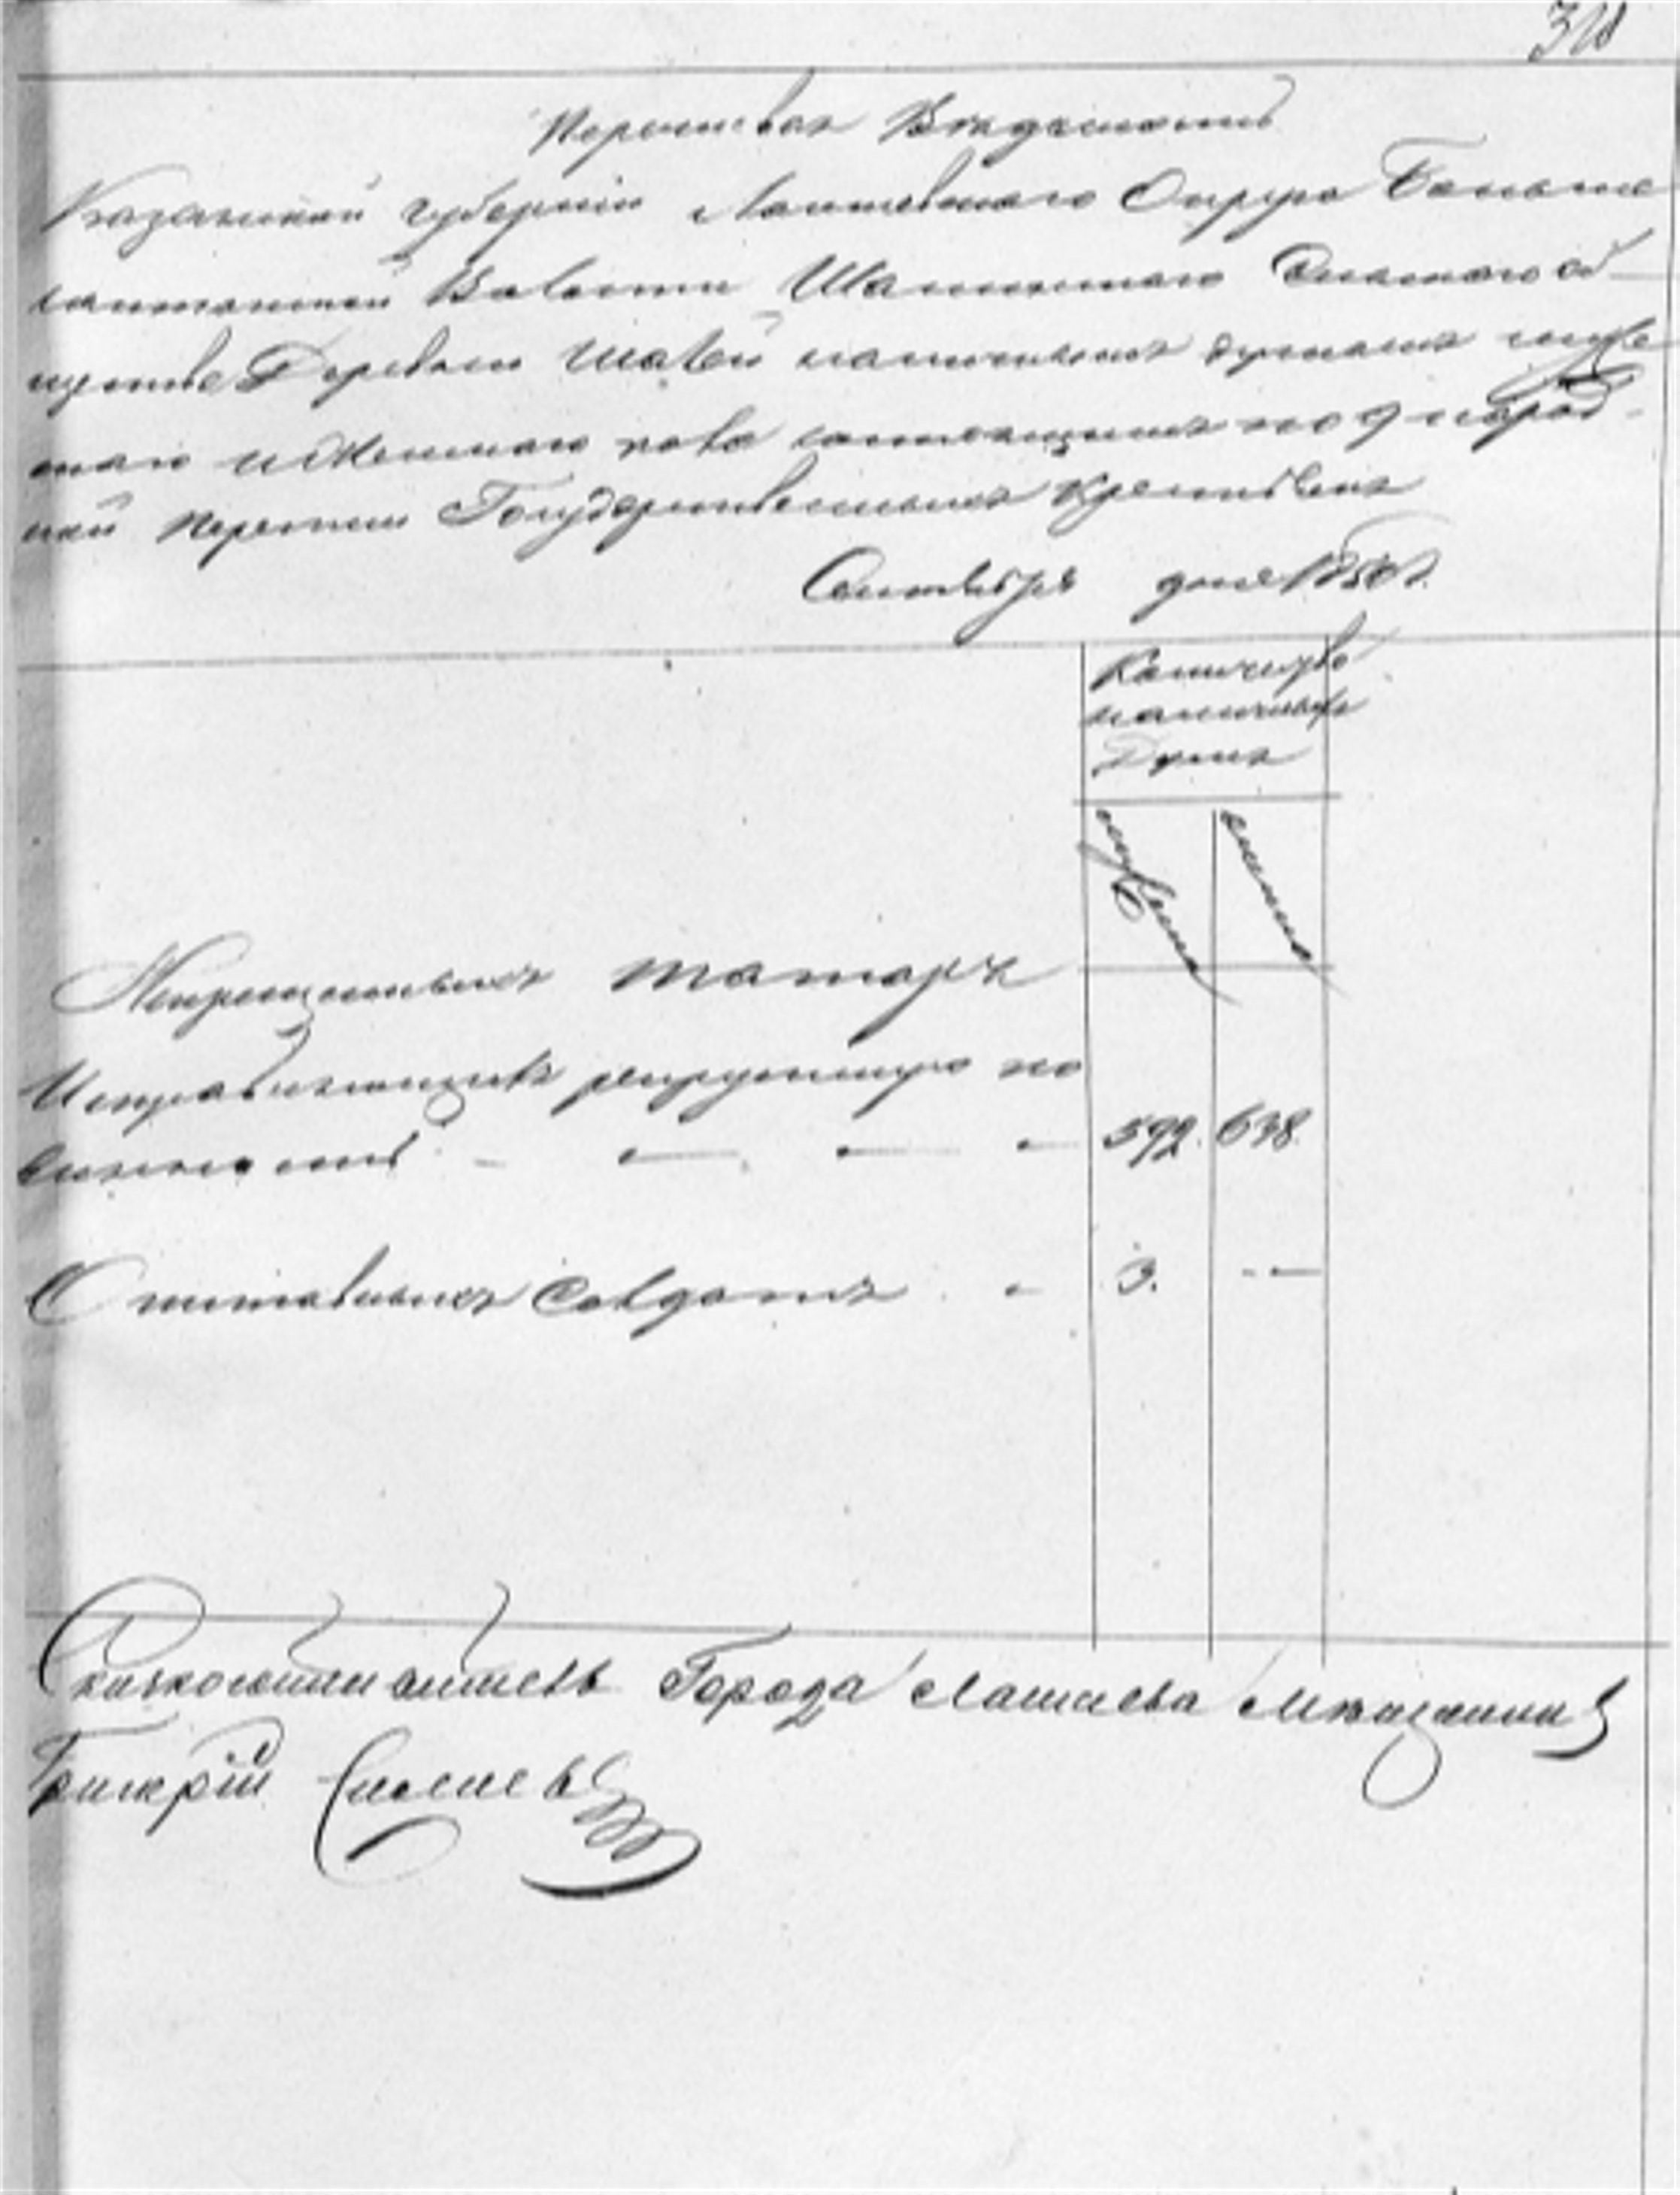 Перечневая Ведомость
Казанской губернии Лаишевскаго Округа Больше
саптанской Волости Шалинскаго Сельскаго об-
щества Деревни Шалей наличныхъ душахъ муже
скаго и Женскаго пола состоящихъ по 9 народ-
ной переписи Государственныхъ крестьянъ
Сентября дня 1850 г.
Количество
наличныхъ
Душъ
мужеска
женска
Некрещенныхъ татаръ
Исправляющихъ рекрутскую по
винность 592. 638.
Отставныхъ Солдатъ 3. --
Города Лаишева Мещанинъ
Григорій